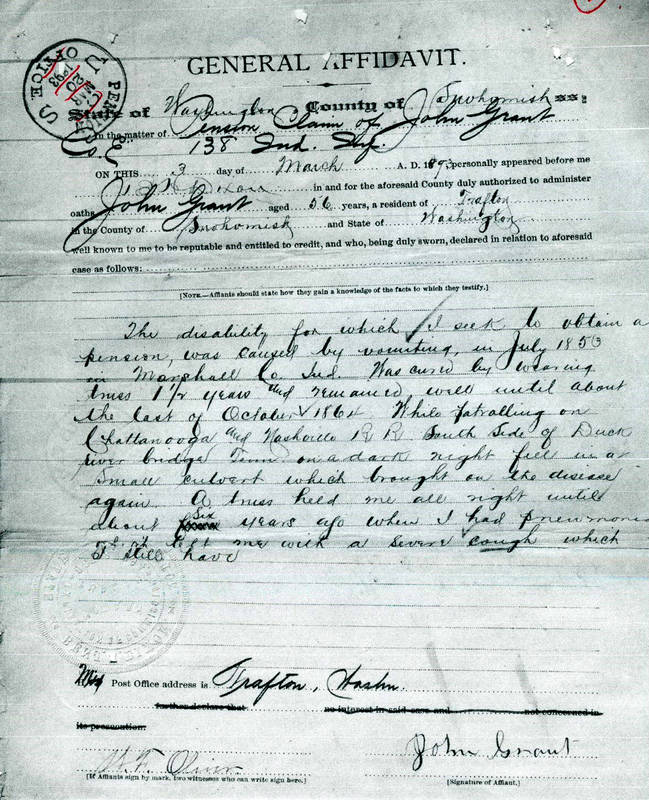 U.S. PENSION OFFICE
MAR 20 1893
GENERAL AFFIDAVIT.
State of Washington County of Snohomish ss:
In the matter of Pension Claim of John Grant
Co. 138 Ind. Inf.
ON THIS 3 day of March A. D. 1893 personally appeared before me
in and for the aforesaid County duly authorized to administer
oaths John Grant aged 56 years, a resident of Trafton
in the County of Snohomish and State of Washington
well known to me to be reputable and entitled to credit, and who, being duly sworn, declared in relation to aforesaid
case as follows:
[NOTE.—Affiants should state how they gain a knowledge of the facts to which they testify.]
The disability for which I seek to obtain a
pension, was caused by vomiting, in July 1850
in Marshall Co Ind. Was cured by wearing
truss 1 1/2 years and remained well until about
the last of October 1864 While Patrolling on
Chattanooga and Nashville R R South Side of Duck
river bridge Tenn on a dark night fell in a
Small culvert which brought on the disease
again. A truss held me all right until
about Six years ago when I had pneumonia
me with a severe cough which
I still have
My Post Office address is Trafton, Washn.
further declare that no interest in said case and not concerned in
its prosecution.
John Grant
[If Affiants sign by mark, two witnesses who can write sign here.] [Signature of Affiant.]